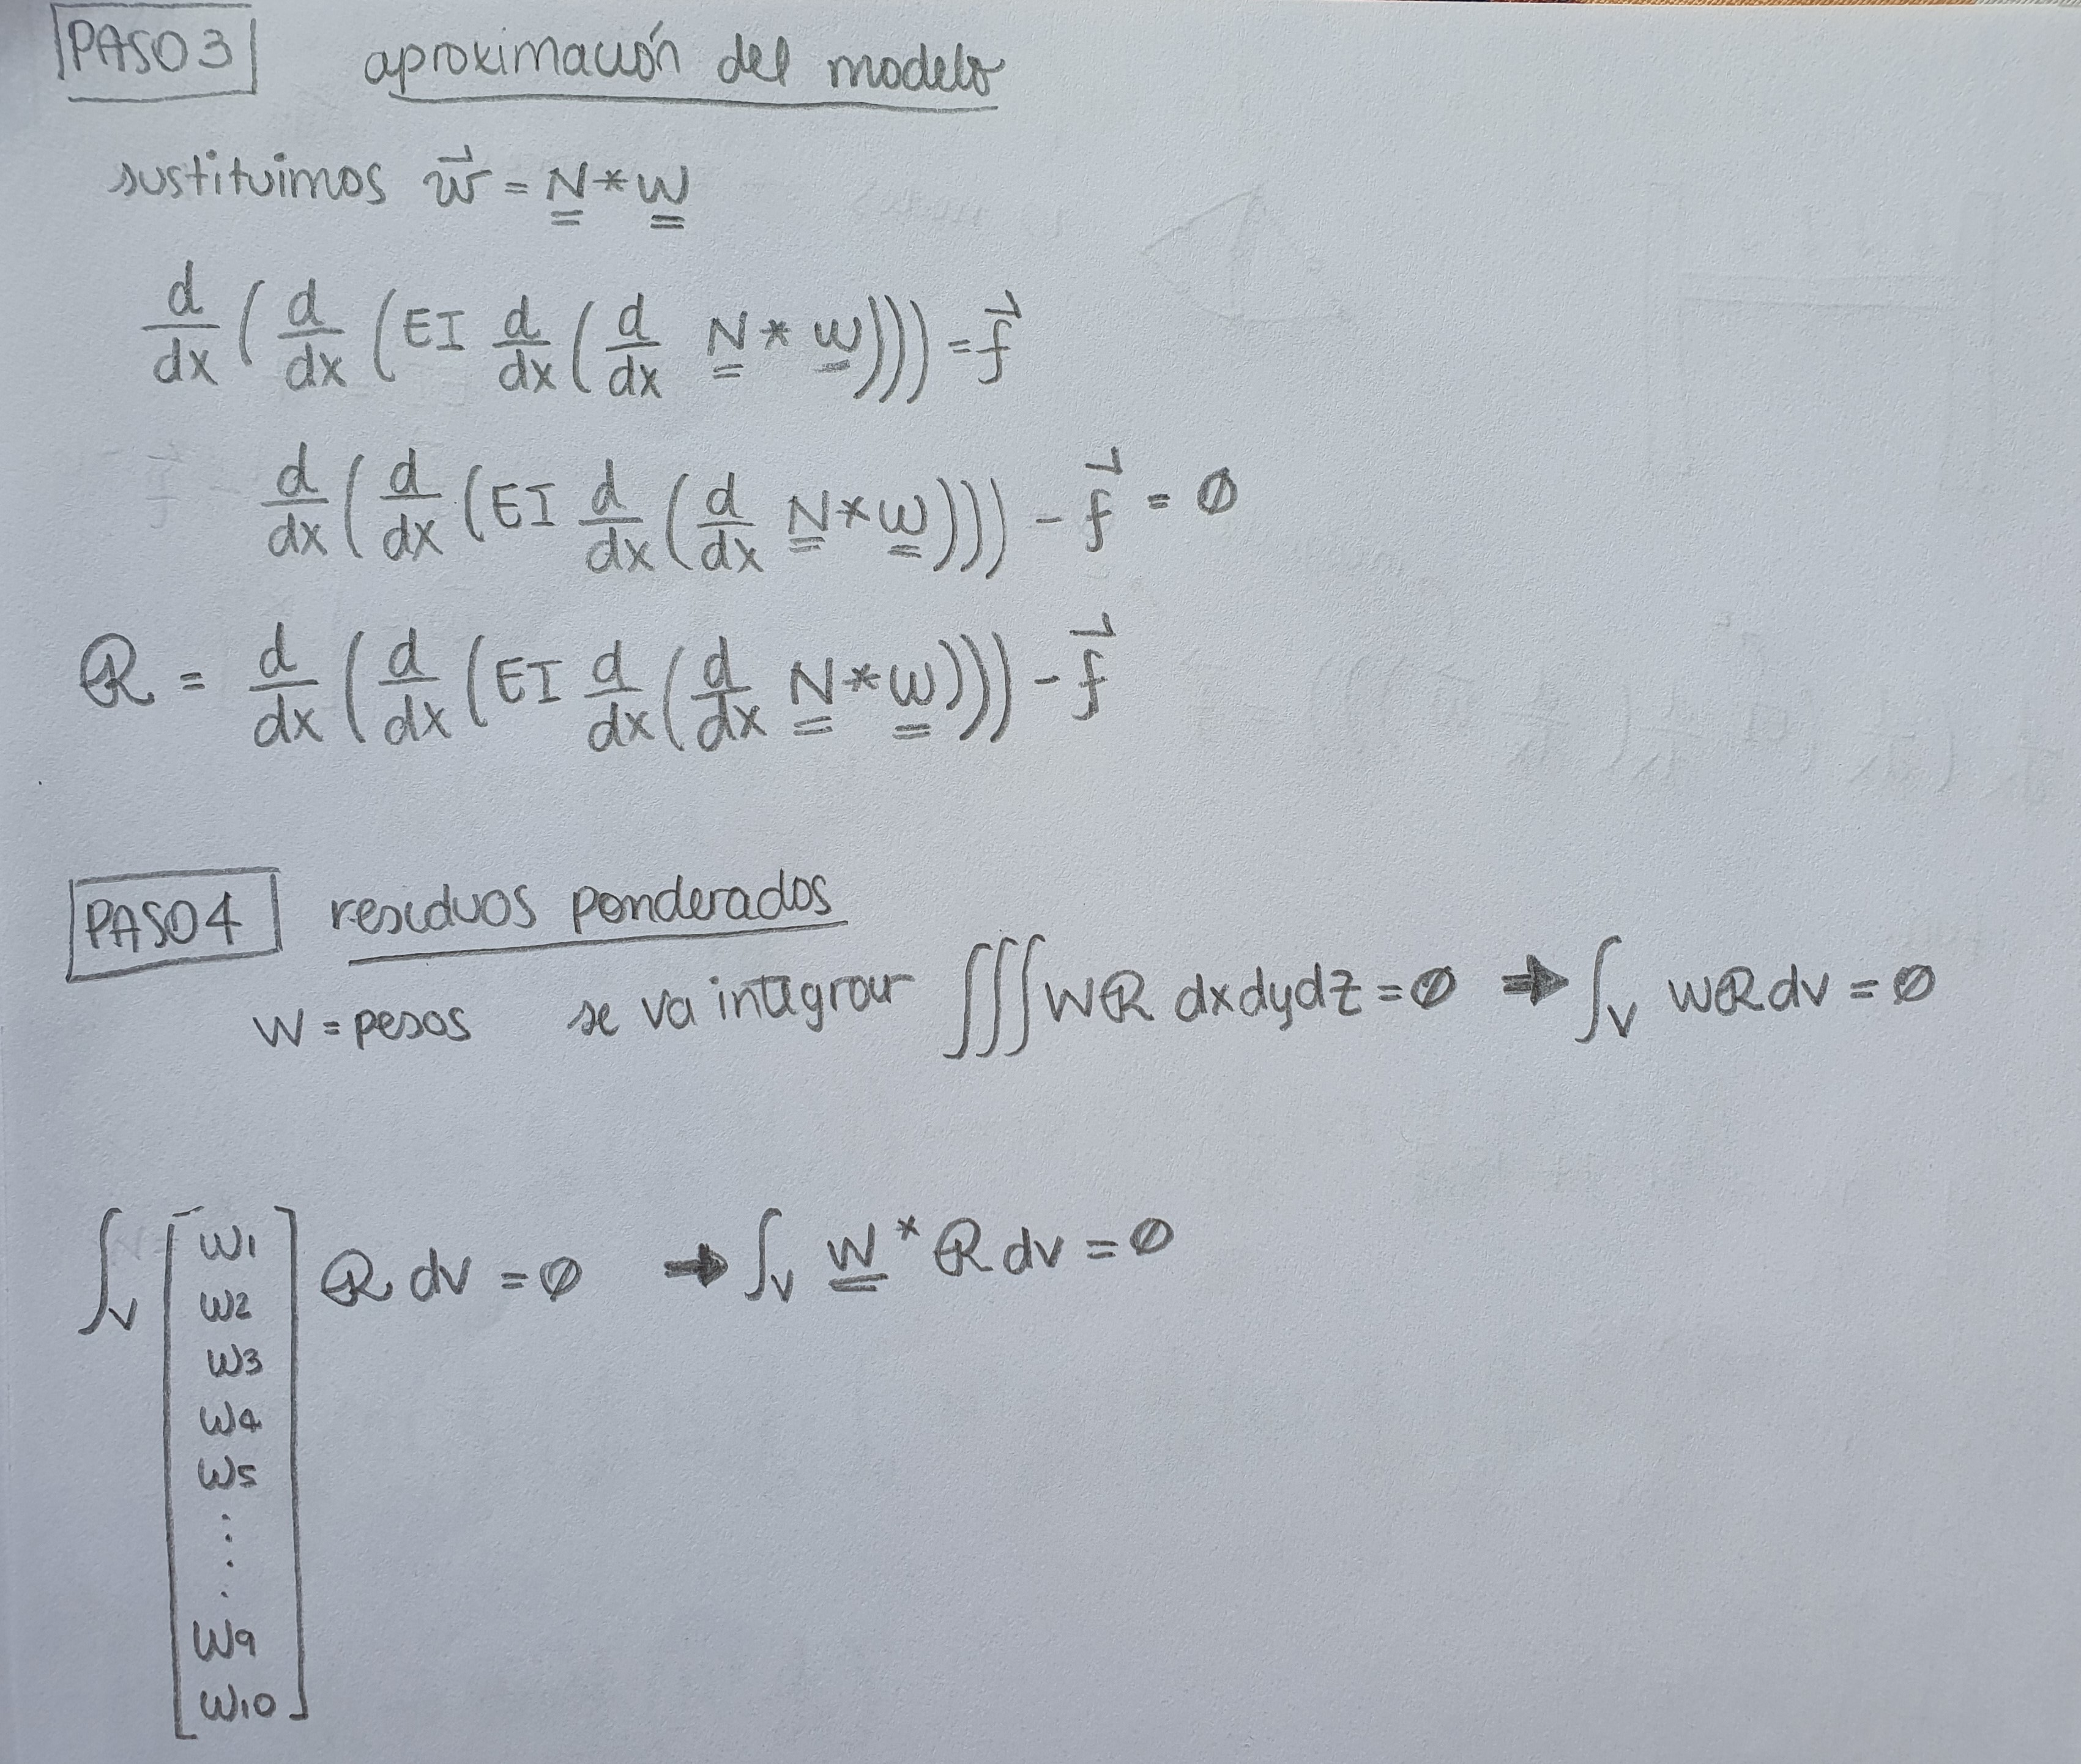 PASO 3 aproximación del modelo
sustituimos w⃗ = N * w
d/dx ( d/dx ( EI d/dx ( d/dx N * w ))) = f⃗
d/dx ( d/dx ( EI d/dx ( d/dx N * w ))) - f⃗ = ∅
R = d/dx ( d/dx ( EI d/dx ( d/dx N * w ))) - f⃗
PASO 4 residuos ponderados
W = pesos se va integrar ∭ WR dxdydz = ∅ → ∫V WR dv = ∅
∫V [ w1 w2 w3 w4 w5 ⋮ w9 w10 ] R dv = ∅ → ∫V W * R dv = ∅